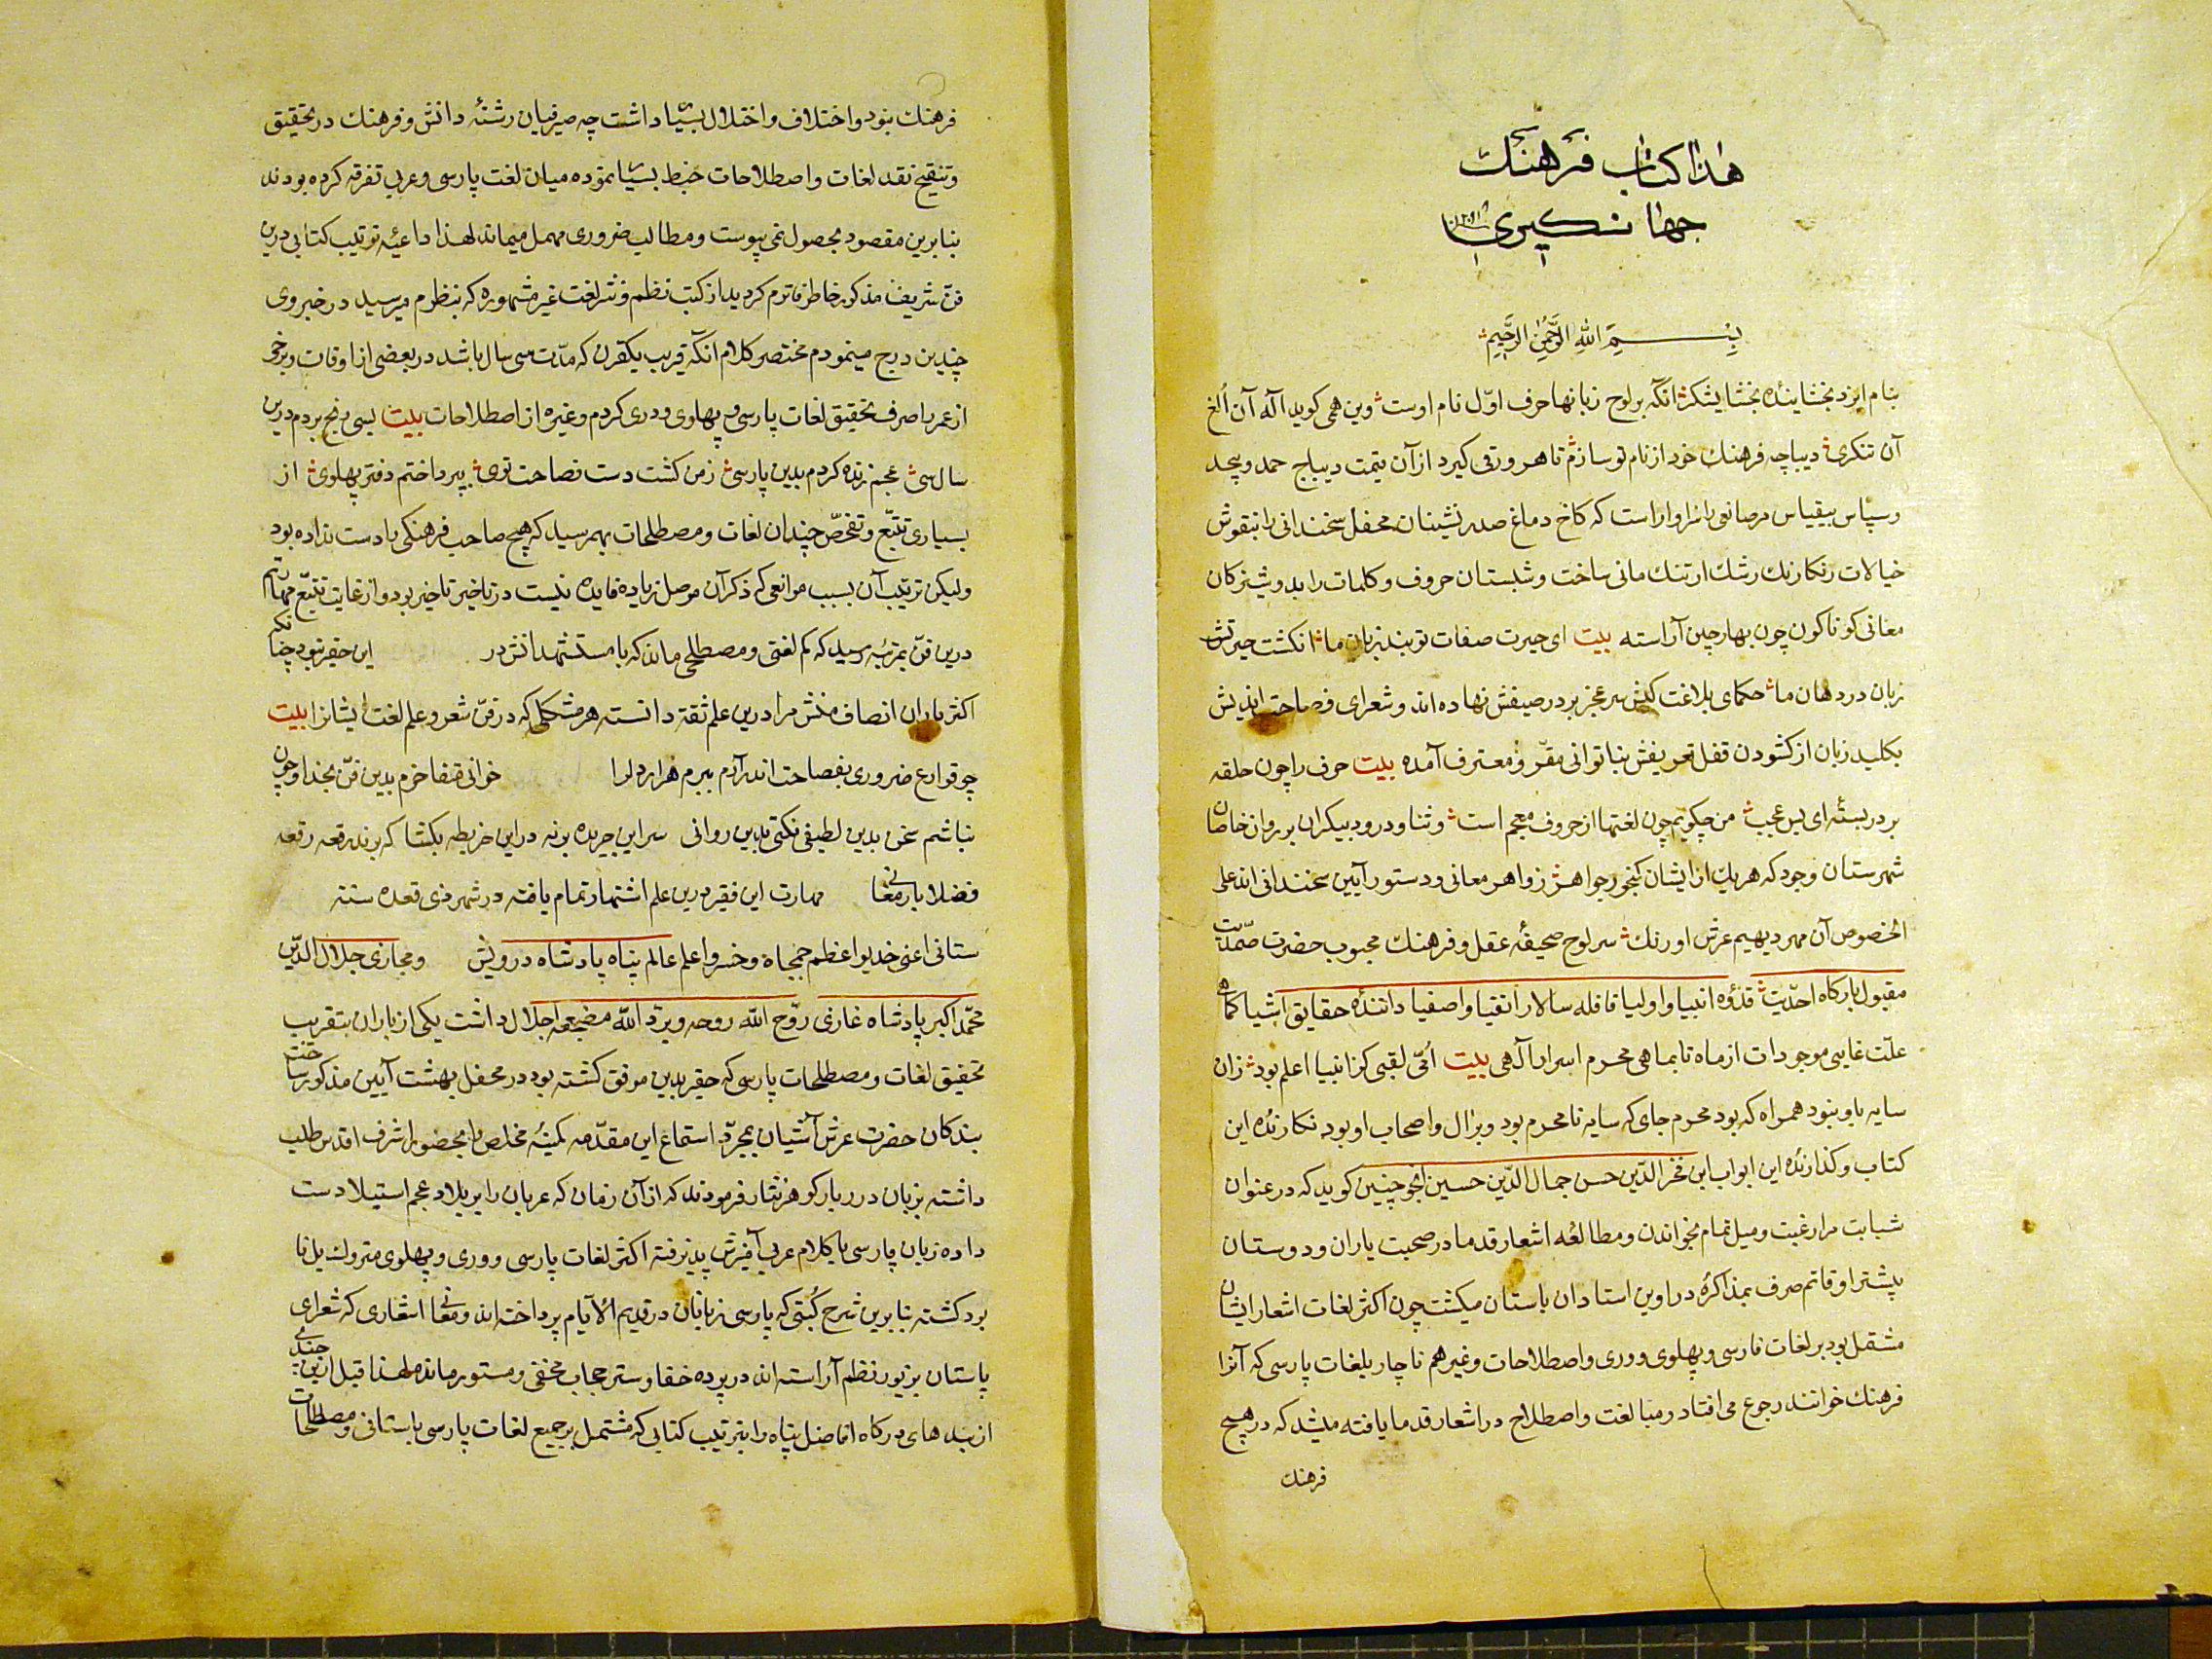 هذا کتاب فرهنک
جهانکیری
بسم الله الرحمن الرحیم
بنام ایزد بخشاینده بخشایشکر انکه بر لوح زبانها حرف اول نام اوست وین همی کوید اله آن الغ
آن تنکری دیباچه فرهنک خود از نام تو سازم تا هر ورقی کیرد از آن قیمت دیباج حمد و بیحد
و سپاس بیقیاس مر صانعی را سزاوار است که کاخ دماغ صدر نشینان محفل سخندانی را بنقوش
خیالات رنکارنک رشک ارتنک مانی ساخت و شبستان حروف و کلمات را بدوشیزکان
معانی کوناکون چون بهار چین آراسته بیت ای حیرت صفات تو بند زبان ما انکشت حیرتش
زبان در دهان ما حکمای بلاغت کیش سر عجز بر در صیفش نهاده اند و شعرای فصاحت اندیش
بکلید زبان از کشودن قفل تعریفش بناتوانی مقر و معترف آمده بیت حرف را چون حلقه
بر در بستهٔ ای بس عجب من چکویم چون لغتها از حروف معجم است و ثنا و درود بیکران بر روان خاصان
شهرستان وجود که هر یک از ایشان کنجور جواهر زواهر معانی و دستور آیین سخندانی اند علی
الخصوص آن مهر دیهیم عرش اورنک سر لوح صحیفهٔ عقل و فرهنک محبوب حضرت صمدیت
مقبول بارکاه احدیت قدوه انبیا و اولیا قافله سالار اتقیا و اصفیا دانندهٔ حقایق اشیا کماهی
علت غایی موجودات از ماه تا بماهی محرم اسرار آلهی بیت امی لقبی کز انبیا اعلم بود زان
سایه باو نبود همراه که بود محرم جای که سایه نامحرم بود و بر آل و اصحاب او بود نکارندهٔ این
کتاب و کذارندهٔ این ابواب ابن فخر الدین حسن جمال الدین حسین انجو چنین کوید که در عنوان
شبابت مرا رغبت و میل تمام بخواندن و مطالعهٔ اشعار قدما در صحبت یاران و دوستان
پیشتر اوقاتم صرف بمذاکرهٔ دواوین استادان باستان میکشت چون اکثر لغات اشعار ایشان
مشتمل بود بر لغات فارسی و پهلوی و دری و اصطلاحات و غیر هم ناچار بلغات پارسی که آنرا
فرهنک خوانند رجوع می افتاد و بسا لغت و اصطلاح در اشعار قدما یافته میشد که در هیچ
فرهنک
فرهنک نبود و اختلاف و اختلال بسیار داشت چه صیرفیان رشتهٔ دانش و فرهنک در تحقیق
و تنقیح نقد لغات و اصطلاحات خبط بسیار نموده میان لغت پارسی و عربی تفرقه کرده بودند
بنابرین مقصود بحصول نمی پیوست و مطالب ضروری مهمل میماند لهذا داعیهٔ ترتیب کتابی درین
فن شریف مذکور خاطر فاترم کردید از کتب نظم و نثر لغت غیر مشهوره که بنظرم میرسید در خبروی
چندین درج مینمودم مختصر کلام انکه قریب یکقرن که مدت سی سال باشد در بعضی از اوقات و برخی
از عمر را صرف تحقیق لغات پارسی و پهلوی و دری کردم و غیره از اصطلاحات بیت بسی رنج بردم درین
سال سی عجم زنده کردم بدین پارسی ز من کشت دست فصاحت قوی بپرداختم دفتر پهلوی از
بسیاری تتبع و تفحص چندان لغات و مصطلحات بهمرسید که هیچ صاحب فرهنکی را دست نداده بود
ولیکن ترتیب آن بسبب موانعی که ذکر آن موصل زیاده فایده نیست در تاخیر تاخیر بود و از غایت تتبع مهارتم
درین فن بمرتبه رسید که کم لغتی و مصطلحی ماند که با مستشهدانش در این حقیر نبود چنانکه
اکثر یاران انصاف منش مرا درین علم ثقه دانسته هر مشکلی که در فن شعر و علم لغت ایشانرا بیت
چو قوارع ضروری بفصاحت اندر آرم ببرم هزار دل را خوانی قنفا خرم بدین فن بخدا و چون
نباشم سخن بدین لطیفی نکتی بدین روانی سر این جریده بر نه در این خریطه بکشا که برند رقعه رقعه
فضلا بارمغانی مهارت این فقیر درین علم اشتهار تمام یافته در شهر ذی قعده سنه
ستانی اعنی خدیو اعظم جمجاه و خسرو اعلم عالم پناه پادشاه درویش و مجازی جلال الدین
محمد اکبر پادشاه غازی روح الله روحه و برد الله مضجعه اجلال داشت یکی از یاران بتقریب
تحقیق لغات و مصطلحات پارسی که حقیر بدین موفق کشته بود در محفل بهشت آیین مذکور ساخت
بندکان حضرت عرش آشیان بمجرد استماع این مقدمه کمینهٔ مخلص را بحضور اشرف اقدس طلب
داشته بزبان درر بار کوهر نثار فرمودند که از آن زمان که عربان را بر بلاد عجم استیلا دست
داده زبان پارسی با کلام عربی آمیزش پذیرفته اکثر لغات پارسی و دری و پهلوی متروک بل نا
برد کشته بنابرین شرح کتبی که پارسی زبانان در قدیم الایام پرداخته اند و معانی اشعاری که شعرای
پاستان بزیور نظم آراسته اند در پرده خفا و ستر حجاب مخفی و مستور مانده لهذا قبل ازین چندی
از بندهای درکاه افاضل پناه را بترتیب کتابی که مشتمل بر جمیع لغات پارسی باستانی و مصطلحات